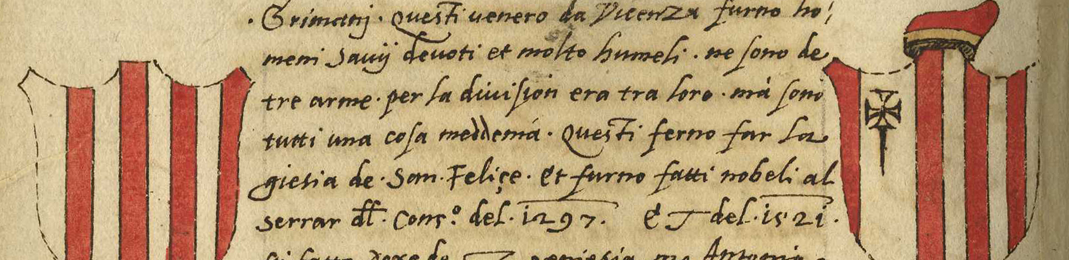 · Grimanj · Questi venero da Vicenza furno ho/
meni Savij devoti et molto humeli · ne sono de
tre arme · per la division era tra loro · mà sono
tutti una cosa meddemà · Questi ferno far la
giesia de · San · Feliçe · Et furno fatti nobeli al
serrar dłł · Cons.º del · 1297 · Et del · 1521 ·
fatto Doxe de Antonio